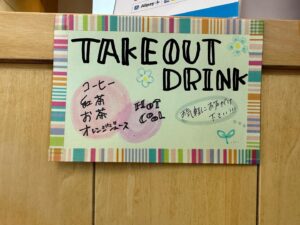 TAKEOUT
DRINK
コーヒー
紅茶
お茶
オレンジジュース
HOT
COOL
お気軽にお声がけ
下さい!!